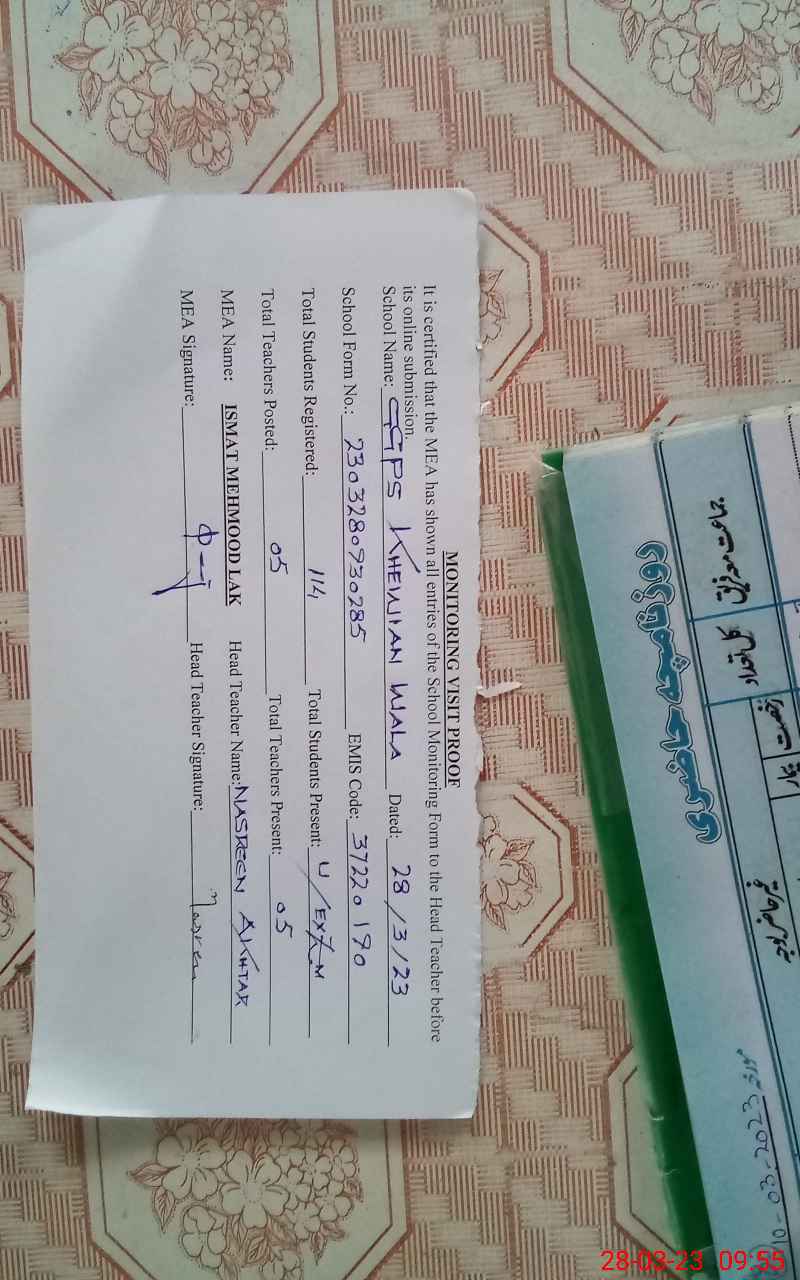 MONITORING VISIT PROOF
It is certified that the MEA has shown all entries of the School Monitoring Form to the Head Teacher before
its online submission.
School Name: GGPS KHEWIAN WALA Dated: 28/3/23
School Form No.: 2303280930285 EMIS Code: 37220190
Total Students Registered: 114 Total Students Present: U/EXAM
Total Teachers Posted: 05 Total Teachers Present: 05
MEA Name: ISMAT MEHMOOD LAK Head Teacher Name: NASREEN AKHTAR
MEA Signature: Head Teacher Signature: Nasreen
روزنامچہ حاضری
جماعت معہ فریق کل تعداد رخصت بیمار غیر حاضر
مورخہ 10-03-2023
28-03-23 09:55